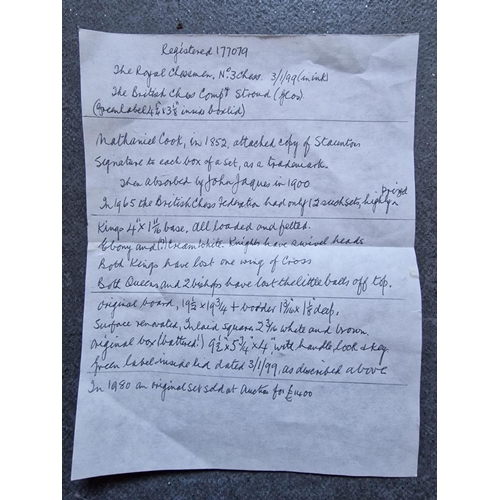 Registered 177079
The Royal Chessmen, No. 3 Chess. 3/1/99 (in ink)
The British Chess Compy Stroud (Glos)
(Green label 4½ x 3⅛" inside box lid)
Nathaniel Cook, in 1852, attached copy of Staunton
Signature to each box of a set, as a trademark.
Then absorbed by John Jaques in 1900
In 1965 the British Chess Federation had only 12 such sets, highly prized
Kings 4" x 1 11/16 base, all loaded and felted.
Ebony and (?) cream white. Knights have swivel heads
Both Kings have lost one wing of Cross
Both Queens and 2 bishops have lost the little balls off top.
Original board, 19½ x 19¾ + border 1 9/16 x 1⅛ deep.
Surface renovated, Inlaid square 2 3/16 white and brown.
Original box (battered!) 9½" x 5¾" x 4", with handle, lock & key
Green label inside lid dated 3/1/99, as described above
In 1980 an original set sold at Auction for £1400